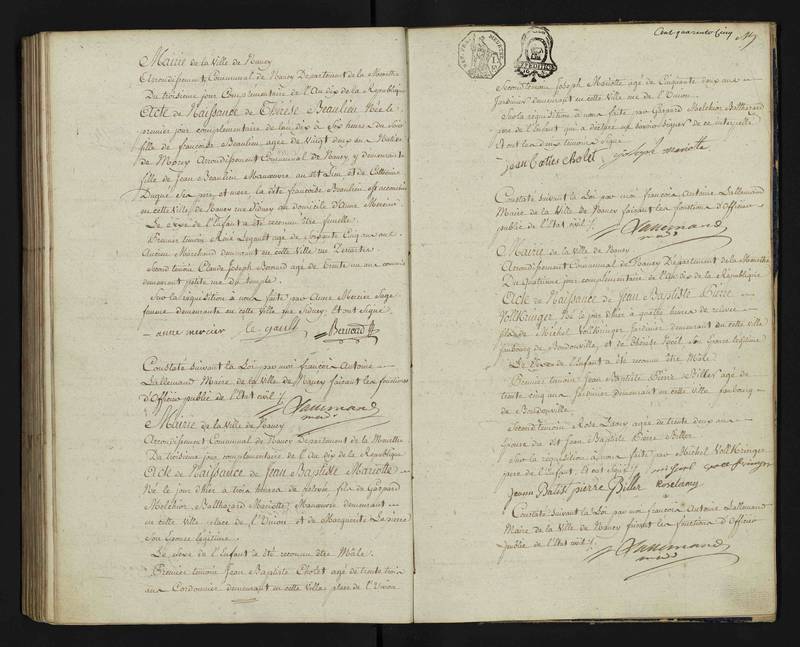 Mairie de la Ville de Nancy
Arrondissement Communal de Nancy Département de la Meurthe
Du troisieme jour Complementaire de l'An dix de la République
Acte de Naissance de Thérèse Beaulieu Née le
premier jour complementaire de l'an dix à Six heures du Soir
fille de françoise Beaulieu agée de Vingt deux ans Native
de Arrondissement Communal de Nancy, y demeurante
fille de Jean Beaulieu Manœuvre au dit Lieu et de Catherine
ses pere et mere, la dite françoise Beaulieu est accouchée
en cette Ville de Nancy rue Sidney au domicile d'Anne Mercier
Le sexe de l'Enfant a été reconnu être femelle.
Premier temoin René Legault agé de Soixante Cinq ans
Ancien Marchand demeurant en cette Ville rue
Second temoin Claude Joseph Bernard agé de trente un ans commis
demeurant petite rue du temple.
Sur la réquisition à nous faite par Anne Mercier Sage
femme demeurante en cette Ville rue Sidney Et ont Signé
anne mercier le gault Bernard
Constaté suivant la Loi par moi françois Antoine
Lallemand Maire de la Ville de Nancy faisant les fonctions
d'Officier public de l'Etat civil
Lallemand
Mairie de la Ville de Nancy
Arrondissement Communal de Nancy Département de la Meurthe
Du troisieme jour complementaire de l'an dix de la République
Acte de Naissance de Jean Baptiste Mariotte
Né le jour d'hier à trois heures de relevée fils de Gaspard
Melchior Balthazard Mariotte, Manœuvre demeurant
en cette Ville place de l'Union et de Marguerite
son Epouse légitime.
Le sexe de l'Enfant a été reconnu être Mâle.
Premier temoin Jean Baptiste Cholet agé de trente trois
ans Cordonnier demeurant en cette Ville place de l'Union
Cent quarante Cinq
Second temoin Joseph Mariotte agé de Cinquante deux ans
Jardinier demeurant en cette Ville rue de l'Union.
Sur la requisition à nous faite par Gaspard Melchior Balthazard
pere de l'Enfant qui a déclaré ne savoir signer de ce interpellé
Et ont les deux temoins Signé
jean Batiste Cholet joseph mariotte
Constaté suivant la Loi par moi françois Antoine Lallemand
Maire de la Ville de Nancy faisant les fonctions d'Officier
public de l'Etat civil
Lallemand
Mairie de la Ville de Nancy
Arrondissement Communal de Nancy Département de la Meurthe
Du Quatrieme jour complementaire de l'An dix de la République
Acte de Naissance de Jean Baptiste Pierre
Vollkringer Né le jour d'hier à quatre heures de relevée
fils de Michel Vollkringer Jardinier demeurant en cette ville
faubourg de Boudonville, et de Thérèse son Epouse légitime
Le Sexe de l'Enfant a été reconnu être Mâle
Premier temoin Jean Baptiste Pierre Biller agé de
trente cinq ans Jardinier demeurant en cette Ville faubourg
de Boudonville
Second temoin Rose Lamy agée de trente deux ans
Epouse du dit Jean Baptiste Pierre Biller
Sur la réquisition à nous faite par Michel Vollkringer
pere de l'Enfant, et ont signé
jean Batist pierre Biller rose lamy
Constaté suivant la Loi par moi françois Antoine Lallemand
Maire de la Ville de Nancy faisant les fonctions d'Officier
public de l'Etat civil
Lallemand